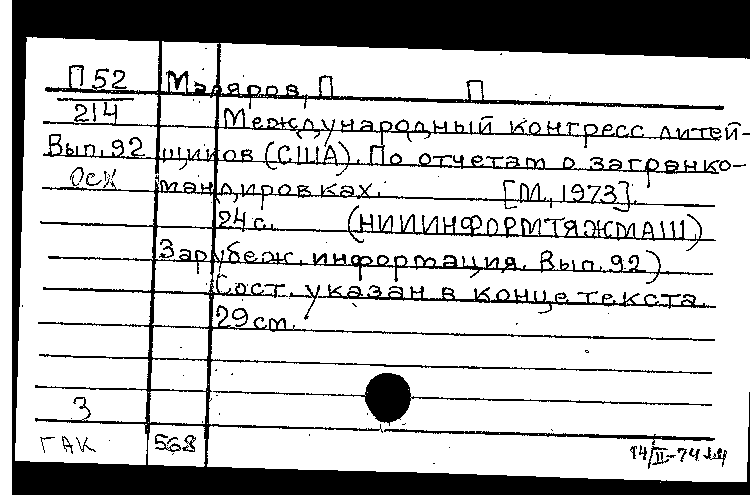 П 52 Маляров, П П
214 Международный конгресс литей-
Вып. 92 щиков (США). По отчетам о загранко-
ОСК мандировках. [М., 1973].
24 с. (НИИИНФОРМТЯЖМАШ)
Зарубеж. информация. Вып. 92)
Сост. указан в конце текста.
29 см.
3
ГАК 568 14/II-74